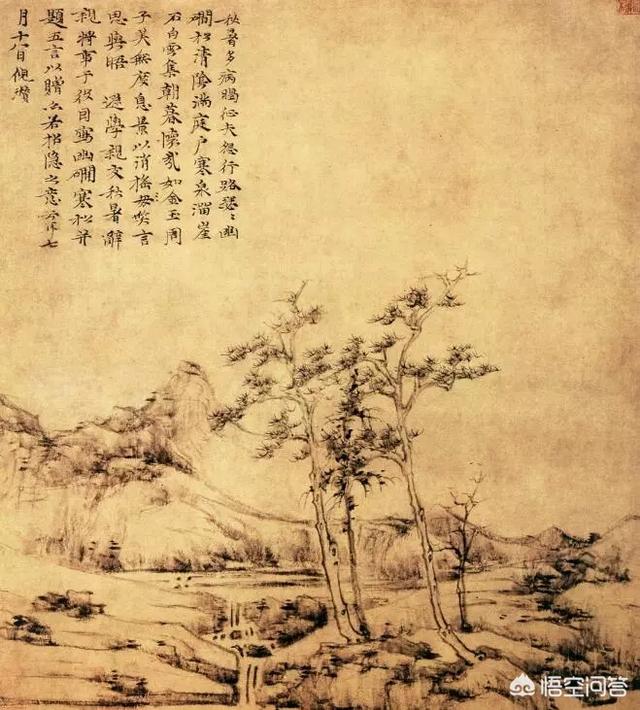 秋暑多病暍征夫怨行路瑟〻幽
磵松清陰滿庭戶寒泉溜崖
石白雲集朝暮懷哉如金玉周
子美無度息景以消搖笑言
思與晤 遜學親友秋暑辭
親將事于役因寫幽磵寒松并
題五言以贈亦若招隱之意云耳七
月十八日倪瓚
悟空问答